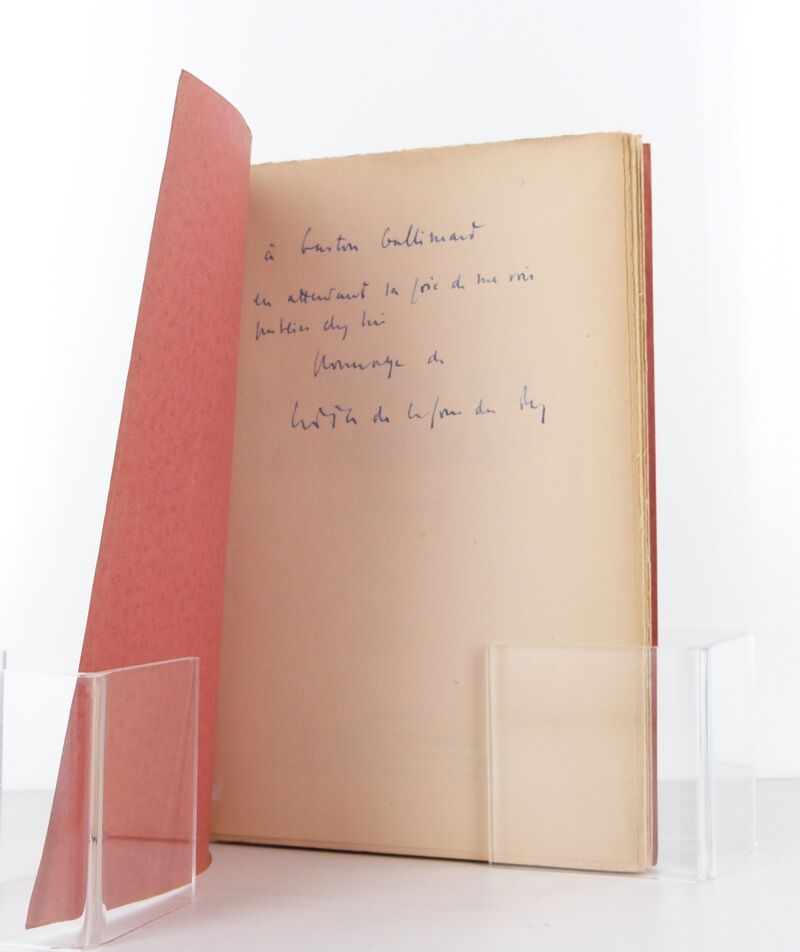 à Gaston Gallimard
en attendant la joie de me voir
publier chez lui
hommage de
de la